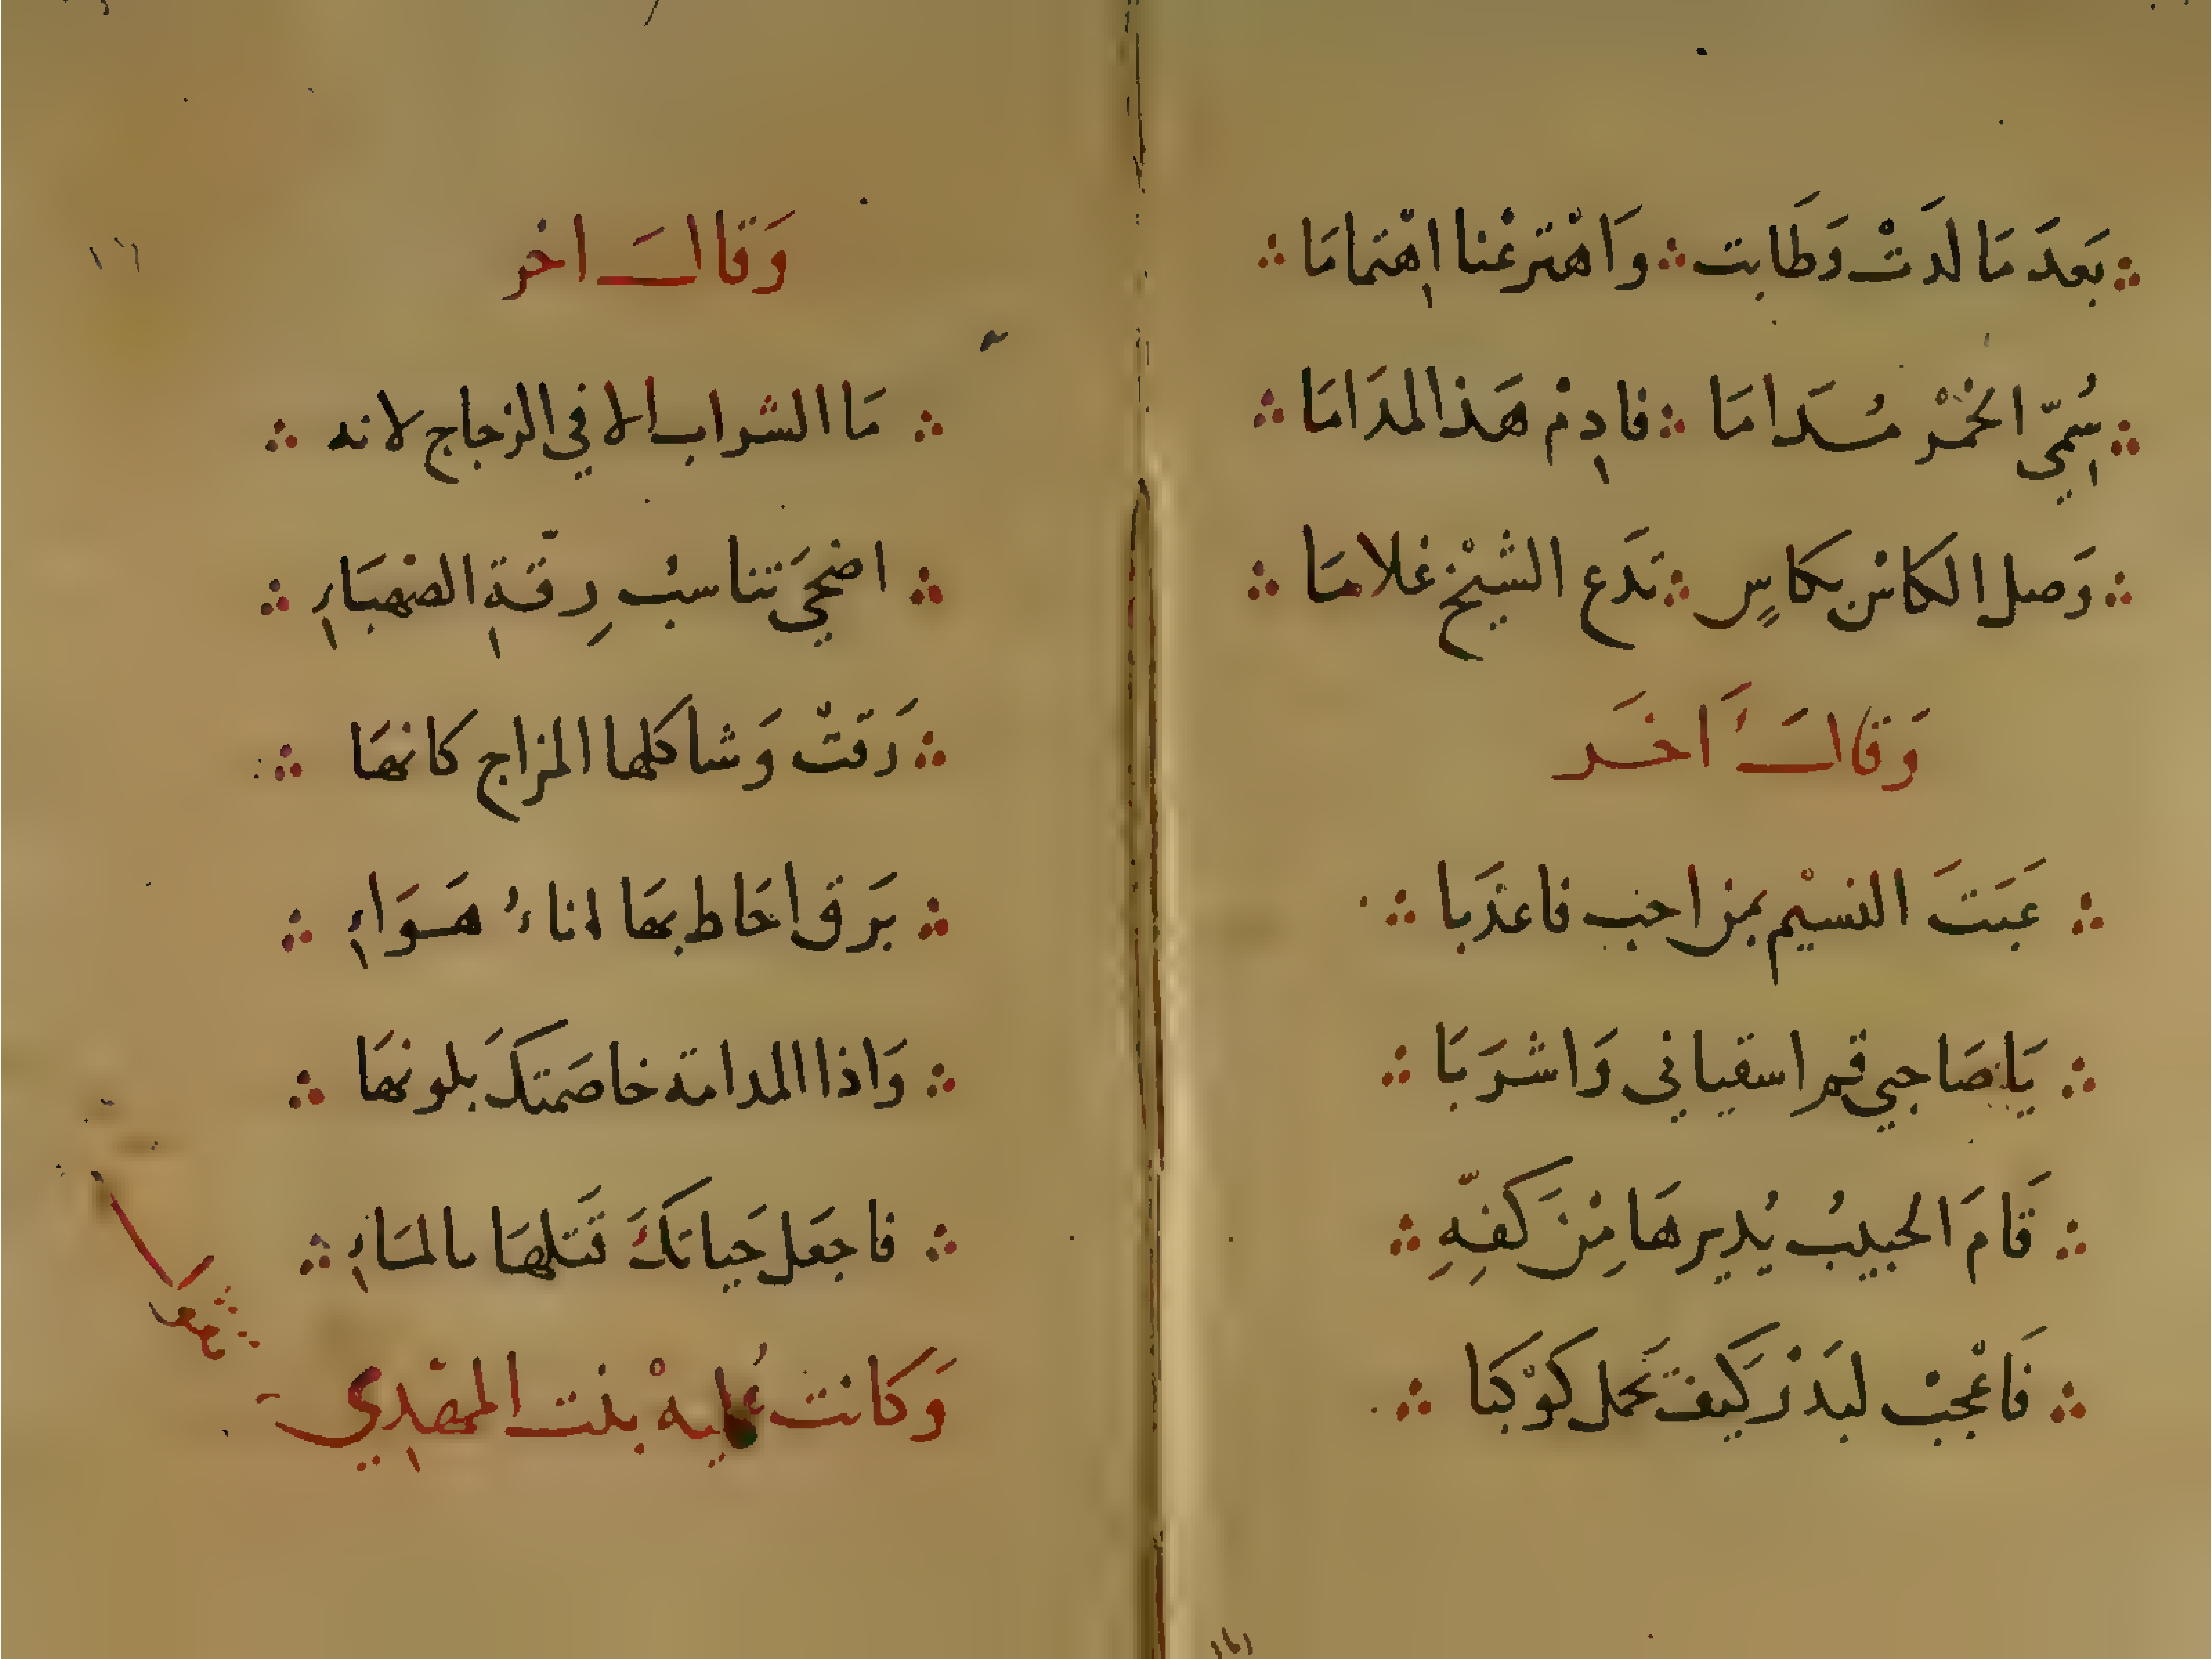 بَعدَ مَا لدَتْ وَطَابت وَاهْترعْنا اهْتمامَا
سُمِّي الخمْرُ مُدَامَا فادِمْ هَذا المدَامَا
وَصل الكاسْ بكاسٍ تدَع الشيْخ غلامَا
وَقالَ أَخَر
عَبَثَ النسيْم بمن احب فاعذَبا
يَا صَاحبي قم اسقياني وَاشرَبَا
قَامَ الحبيبُ يُديرهَا مِنْ كَفّهِ
فَاعْجبْ لبَدْرٍ كَيفَ تحمل كوْكبَا
وَقالَ اخر
١٦
مَا الشراب الا في الزجاج لانه
اضحَي تناسبُ رِقّةِ الصهبَاءِ
رَقتْ وَشاكلها المزاج كانهَا
بَرق احَاط بهَا اناءُ هَوَاءِ
وَاذا المدامة خاصَمتكَ بلونهَا
فاجعَل حيَاتكَ قتَلهَا بالمَاءِ
وَكانت عُليهْ بنت المهْدِي
شعر